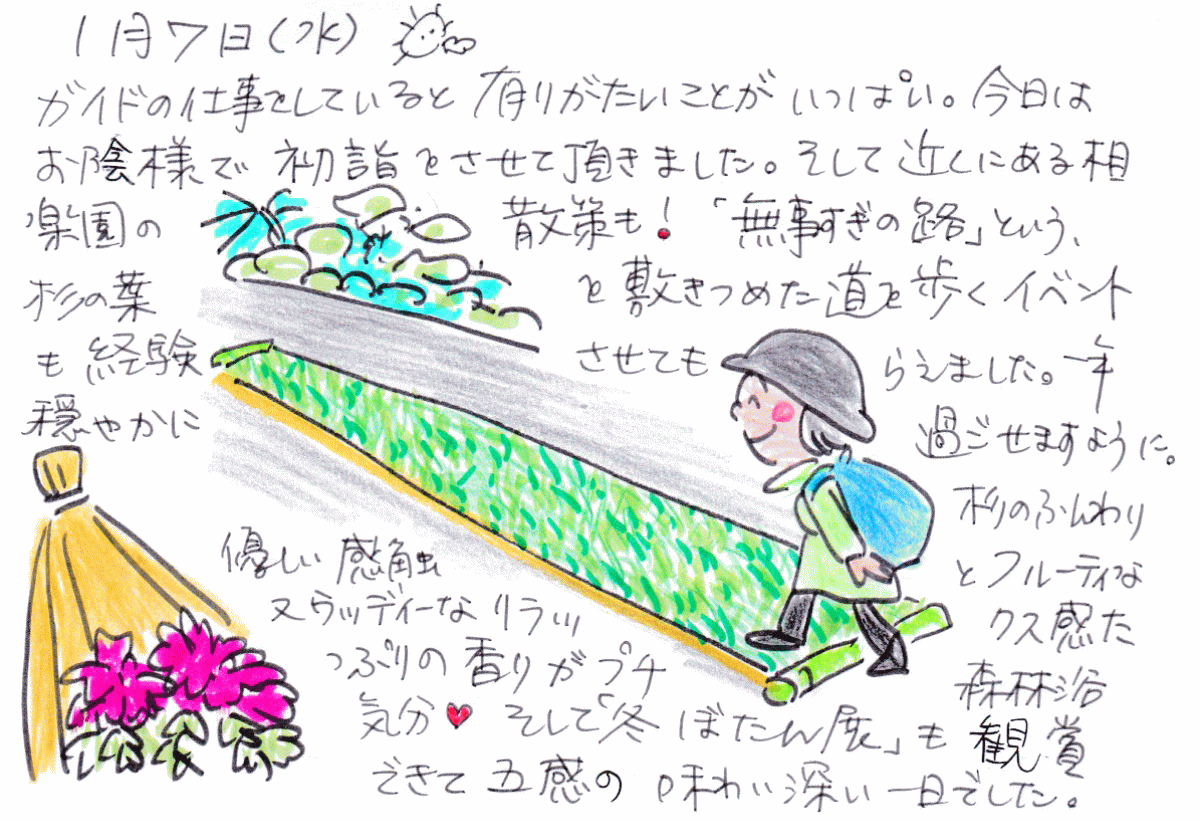 1月7日(水)
ガイドの仕事をしていると 有りがたいことが いっぱい。今日は
お陰様で 初詣をさせて頂きました。そして近くにある相
楽園の 散策も！「無事すぎの路」という、
杉の葉 を敷きつめた道を歩くイベント
も経験 させても らえました。一年
穏やかに 過ごせますように。
杉のふんわり
優しい感触 とフルーティな
又ウッディーなリラッ クス感た
っぷりの香りがプチ 森林浴
気分♥ そして「冬ぼたん展」も 観賞
できて 五感の 味わい深い一日でした。